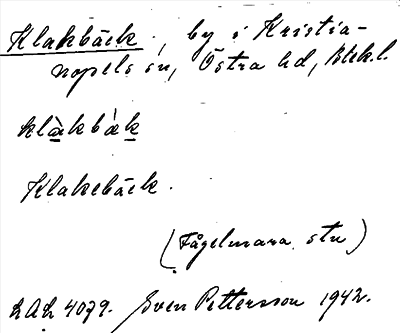 Klakbäck, by i Kristia-
nopels sn, Östra hd, Blek.l.
klàkbàk
Klakebäck.
(Fågelmara stn)
LAL 4079. Sven Pettersson 1942.